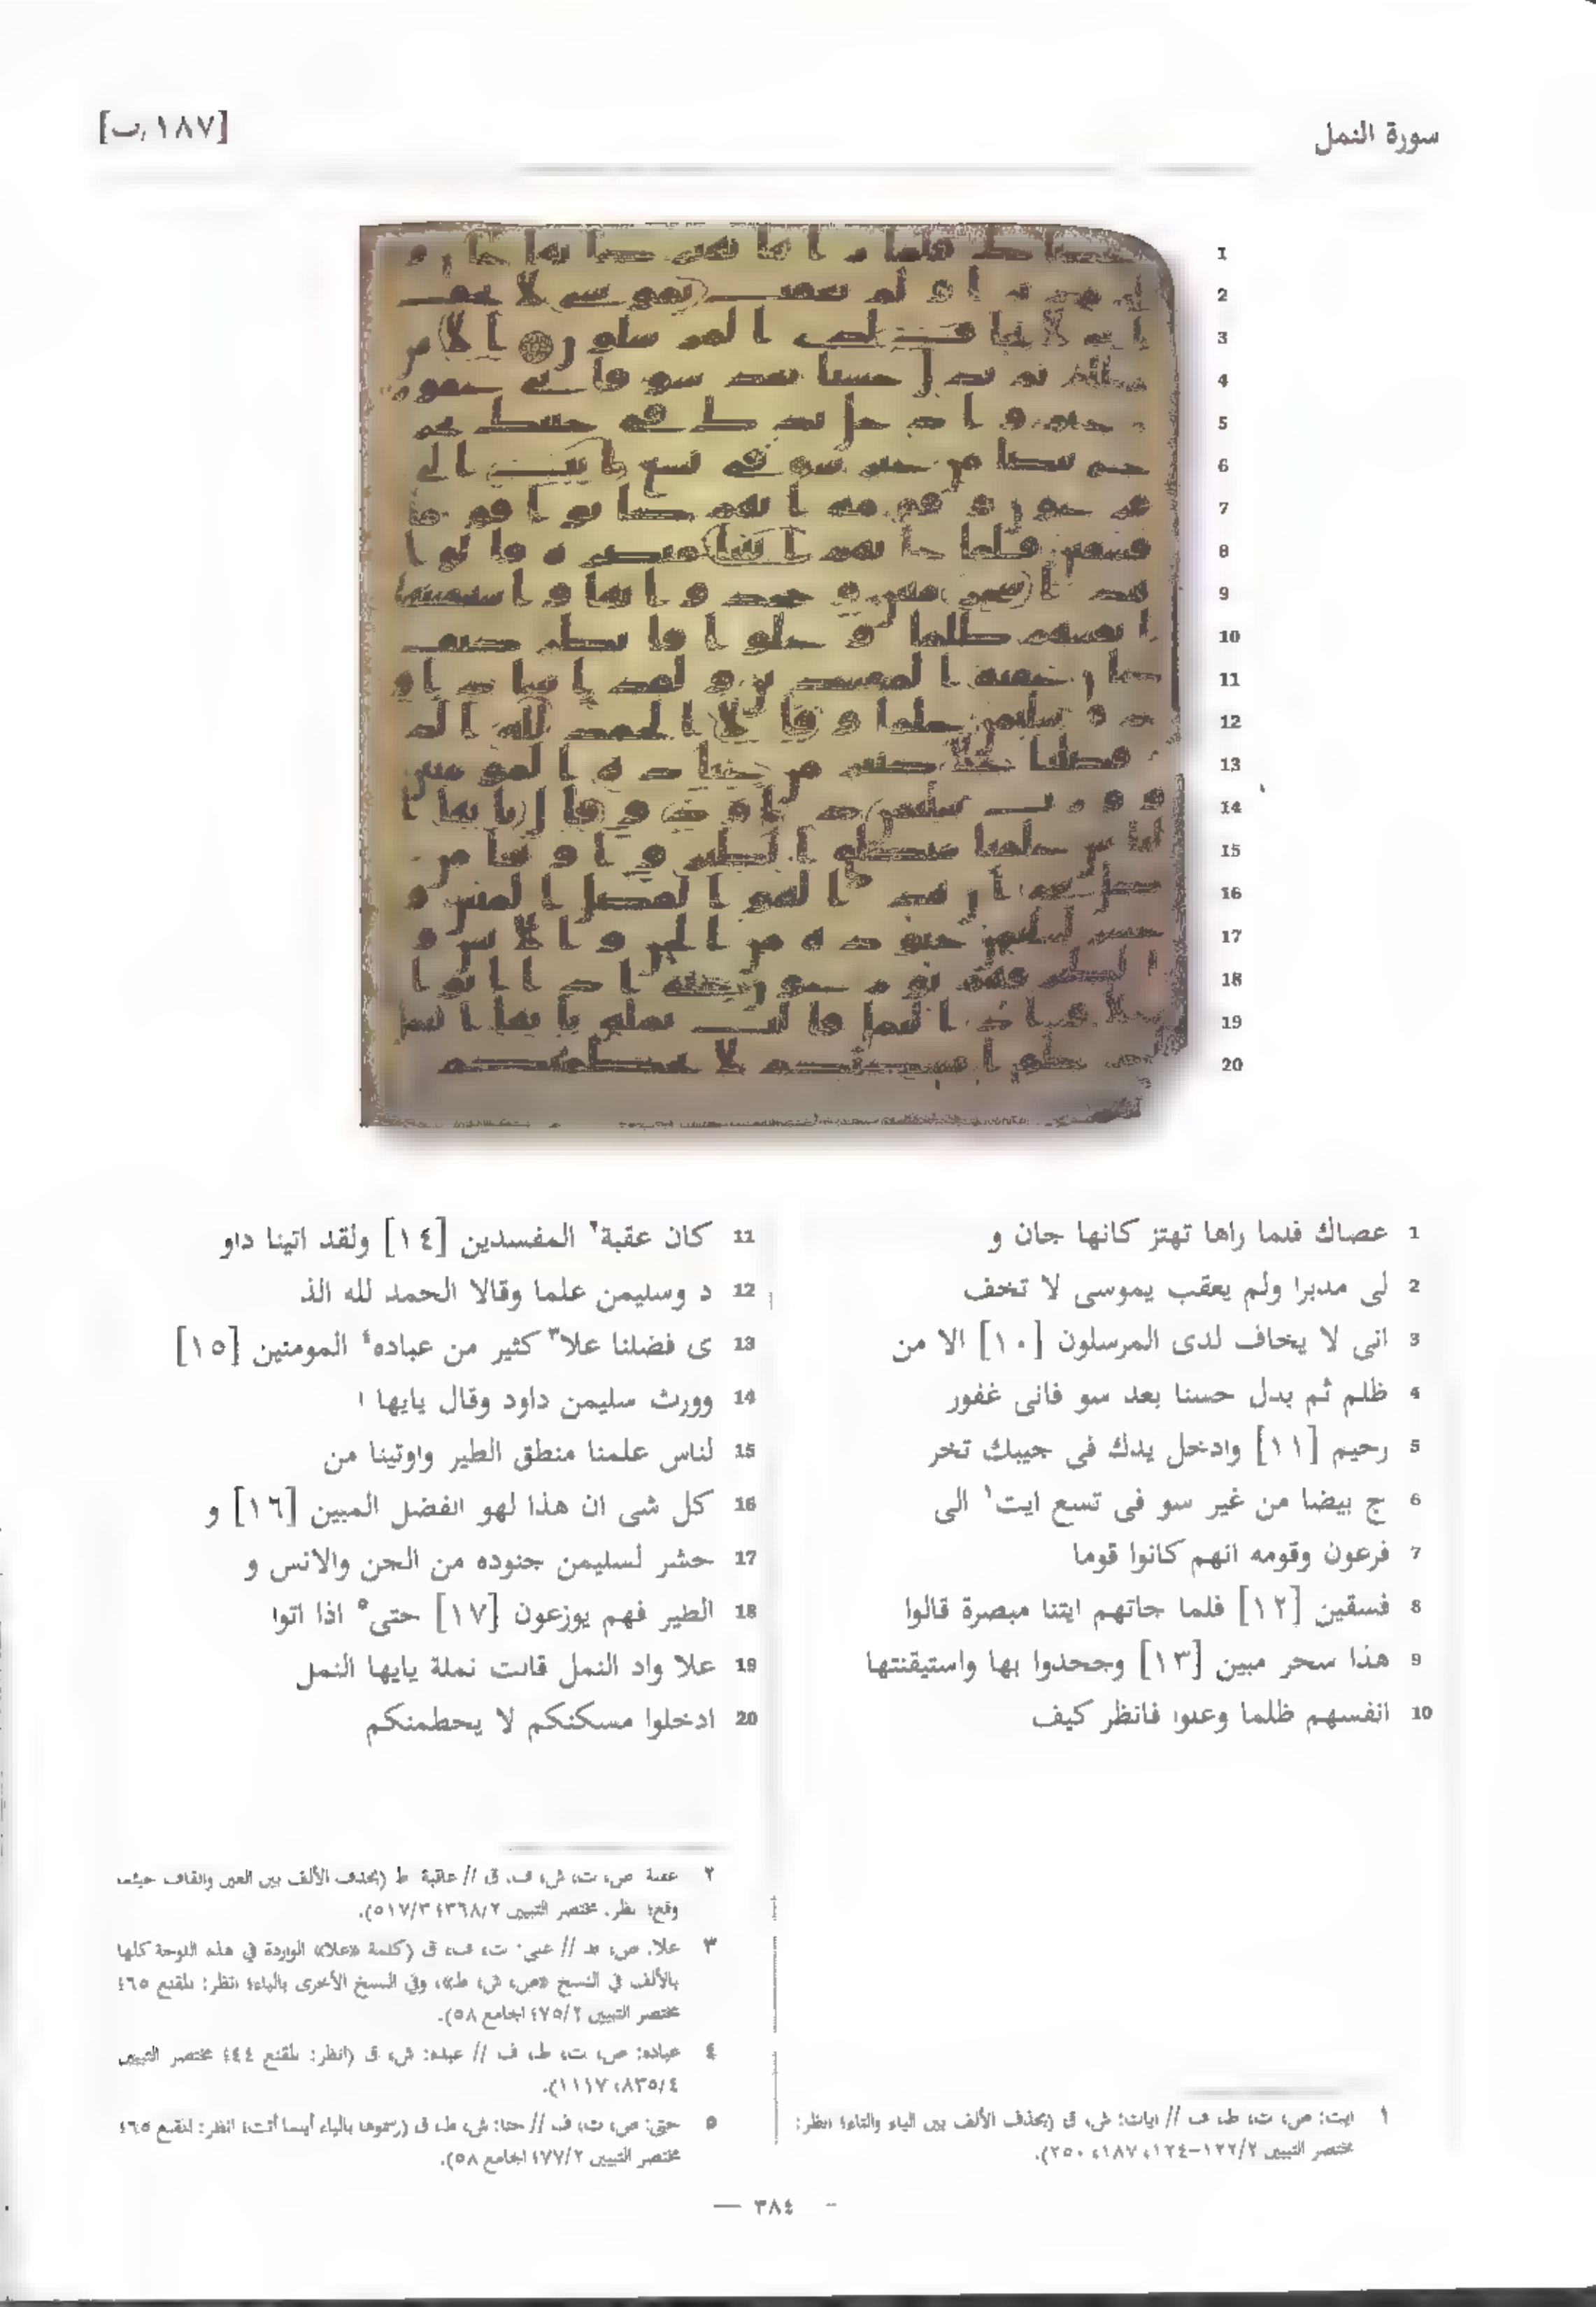 سورة النمل
[١٨٧/ب]
1 عصاك فلما راها تهتز كانها جان و
2 لى مدبرا ولم يعقب يموسى لا تخف
3 انى لا يخاف لدى المرسلون [١٠] الا من
4 ظلم ثم بدل حسنا بعد سو فانى غفور
5 رحيم [١١] وادخل يدك فى جيبك تخر
6 ج بيضا من غير سو فى تسع ايت١ الى
7 فرعون وقومه انهم كانوا قوما
8 فسقين [١٢] فلما جاتهم ايتنا مبصرة قالوا
9 هذا سحر مبين [١٣] وجحدوا بها واستيقنتها
10 انفسهم ظلما وعلوا فانظر كيف
11 كان عقبة٢ المفسدين [١٤] ولقد اتينا داو
12 د وسليمن علما وقالا الحمد لله الذ
13 ى فضلنا علا٣ كثير من عباده٤ المومنين [١٥]
14 وورث سليمن داود وقال يايها ا
15 لناس علمنا منطق الطير واوتينا من
16 كل شى ان هذا لهو الفضل المبين [١٦] و
17 حشر لسليمن جنوده من الجن والانس و
18 الطير فهم يوزعون [١٧] حتى٥ اذا اتوا
19 علا واد النمل قالت نملة يايها النمل
20 ادخلوا مسكنكم لا يحطمنكم
١ ايت: ص، ت، ط، ف // ايات: ش، ق (بحذف الألف بين الياء والتاء؛ انظر:
مختصر التبيين ١٢٢/٢-١٢٤، ١٨٧، ٢٥٠).
٢ عقبة: ص، ت، ش، ف، ق // عاقبة: ط (بحذف الألف بين العين والقاف حيثما
وقع؛ نظر: مختصر التبيين ٣٦٨/٢؛ ٥١٧/٣).
٣ علا: ص، ط // على: ت، ف، ق (كلمة «علا» الواردة في هذه اللوحة كلها
بالألف في النسخ «ص، ش، ط»، وفي النسخ الأخرى بالياء؛ انظر: المقنع ٤٦٥
مختصر التبيين ٧٥/٢؛ الجامع ٥٨).
٤ عباده: ص، ت، ط، ف // عبده: ش، ق (انظر: المقنع ٤٤٤؛ مختصر التبيين
٨٣٥/٤، ١١١٧).
٥ حتى: ص، ت، ف // حتا: ش، ط، ق (رسموها بالياء أينما أتت؛ انظر: المقنع ٤٦٥
مختصر التبيين ٧٧/٢؛ الجامع ٥٨).
— ٣٨٤ —